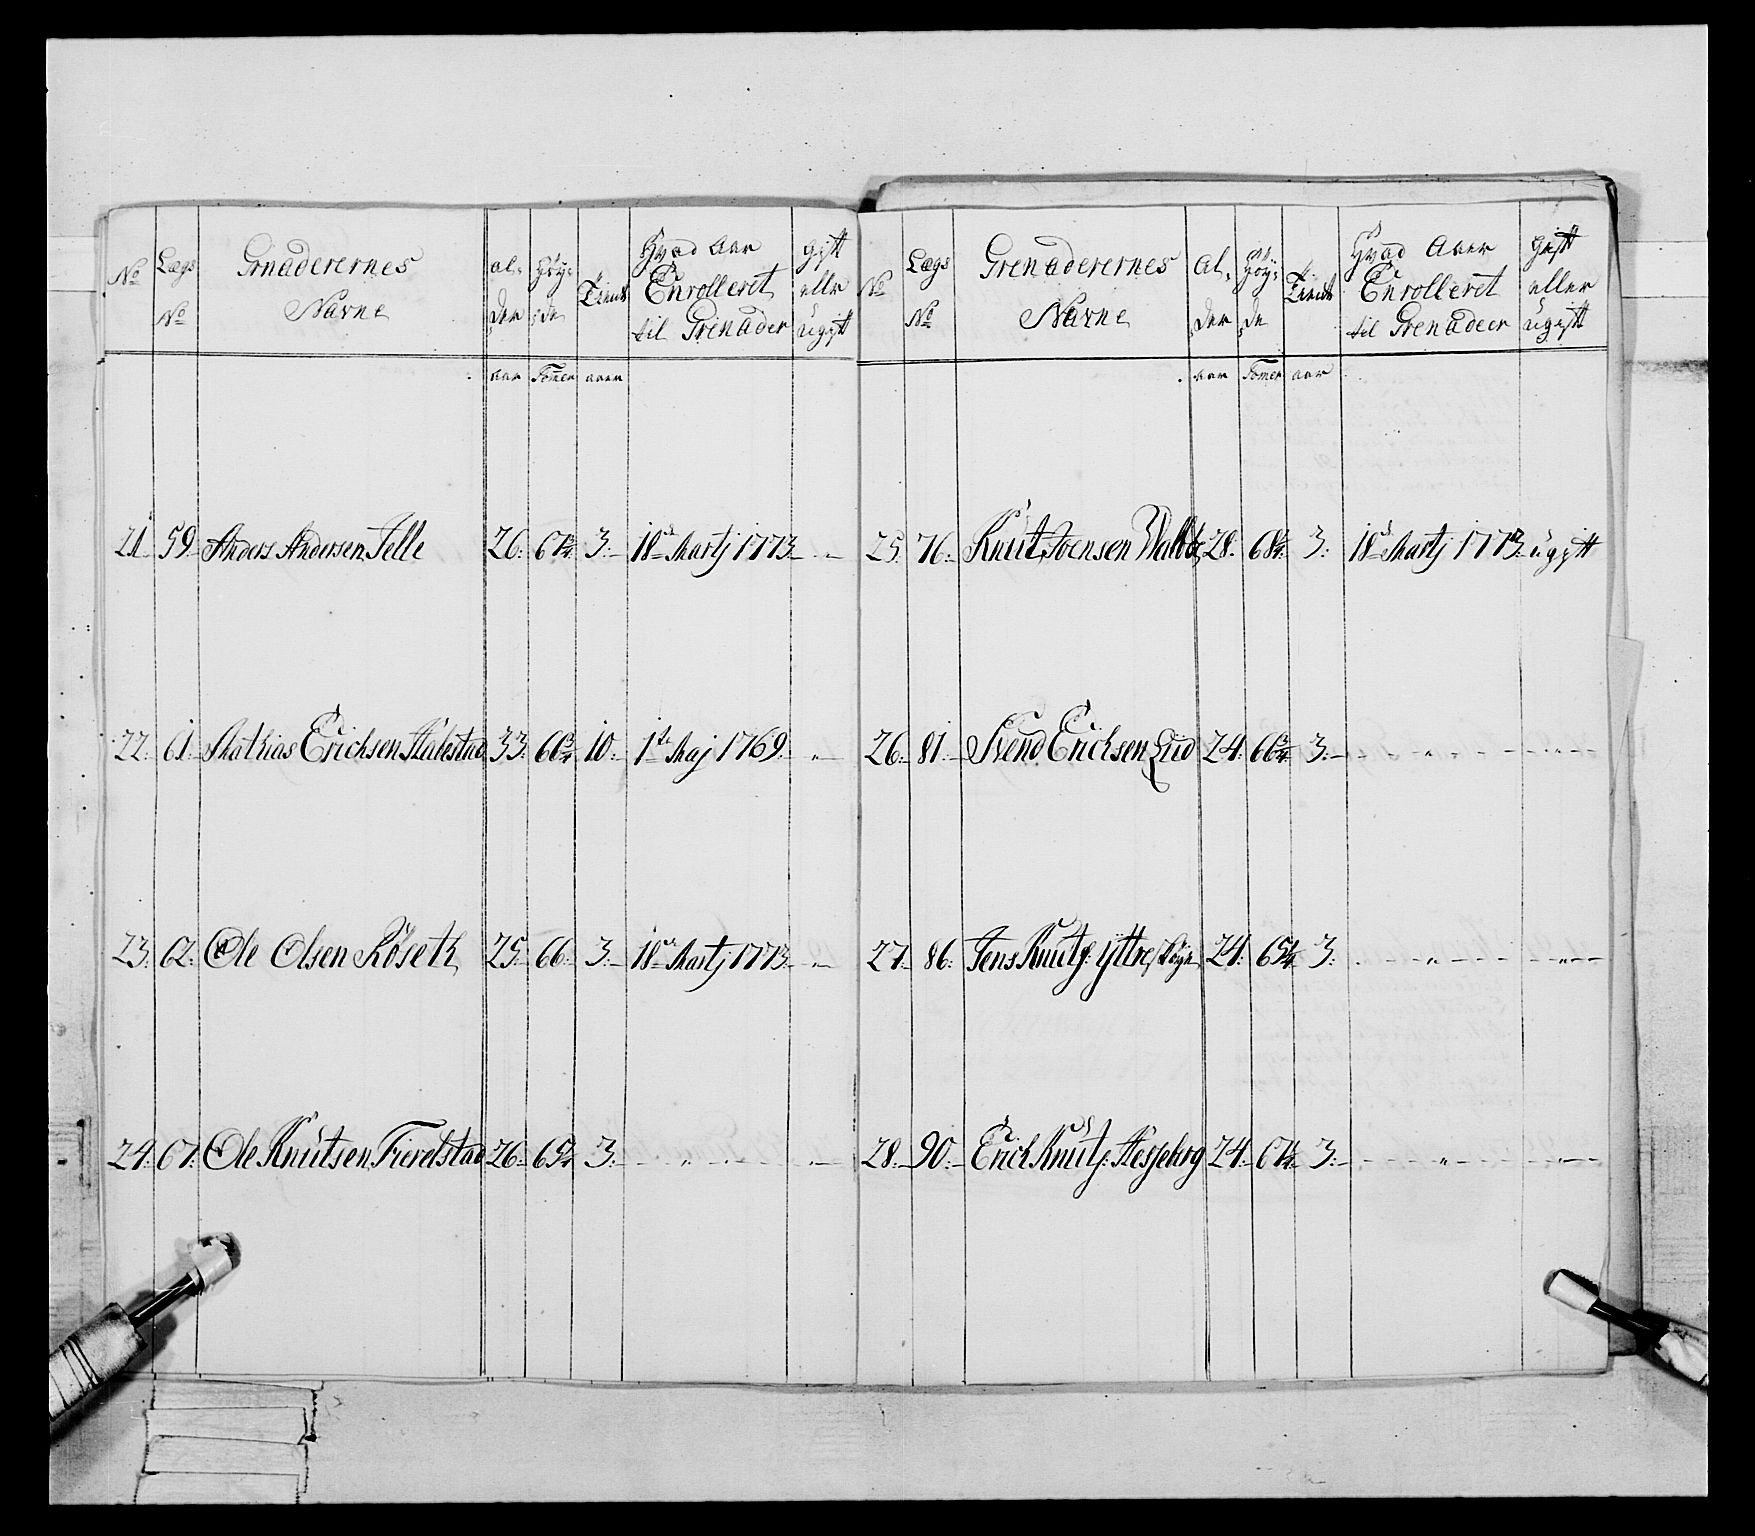 No Lægs No Grnaderernes Navne al- der Høy- de Tient Hvad Aar Enrolleret til Grenader gift eller ugift
aar Tomer aar
21 59 Anders Andersen Felle 26. 67¾ 3. 18de Martj 1773. "
22. 61. Mathias Erichsen 33. 66¾ 10. 1ste Maj 1769. "
23. 62. Ole Olsen Röseth 25. 66. 3. 18de Martj 1773. "
24. 67. Ole Knutsen 26. 65 3. " "
No Lægs No Grenaderernes Navne Al- der Høy- de Tient Hvad Aar Enrolleret til Grenadeer gift eller ugift
aar Tomer aar
25. 76. Knut Joensen 28. 68 3. 18de Martj 1773. ugift
26. 81. Svend Erichsen Lüd 24. 66¾ 3. " "
27. 86. Jens Knuts: yttre 24. 65 3. " "
28. 90. Erich Knuts: 24. 67 3. " "